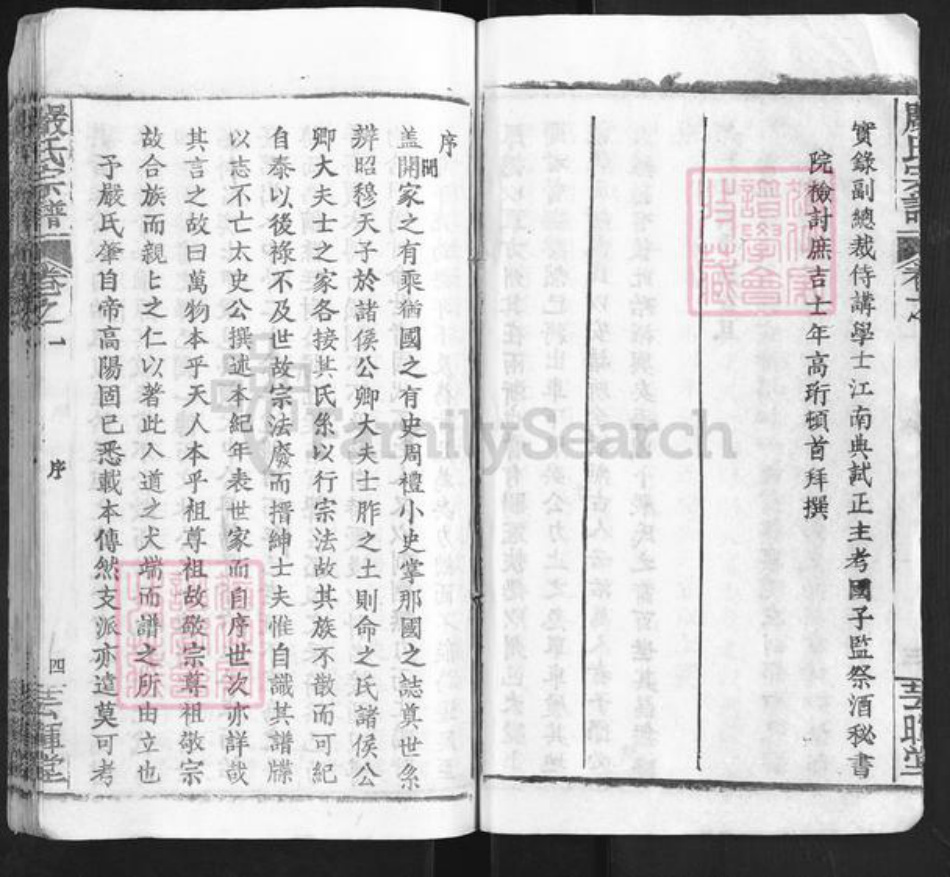 實錄副總裁侍講學士江南典試正主考國子監祭酒秘書
院檢討庶吉士年高珩頓首拜撰
序
蓋聞家之有乘猶國之有史周禮小史掌邦國之誌奠世系
辨昭穆天子於諸侯公卿大夫士胙之土則命之氏諸侯公
卿大夫士之家各接其氏系以行宗法故其族不散而可紀
自秦以後祿不及世故宗法廢而搢紳士夫惟自識其譜牒
以志不亡太史公撰述本紀年表世家而自序世次亦詳哉
其言之故曰萬物本乎天人本乎祖尊祖故敬宗尊祖敬宗
故合族而親匕之仁以著此人道之大端而譜之所由立也
予嚴氏肇自帝高陽固已悉載本傳然支派亦遠莫可考
嚴氏宗譜
卷之一
序
四
芸暉堂
FamilySearch